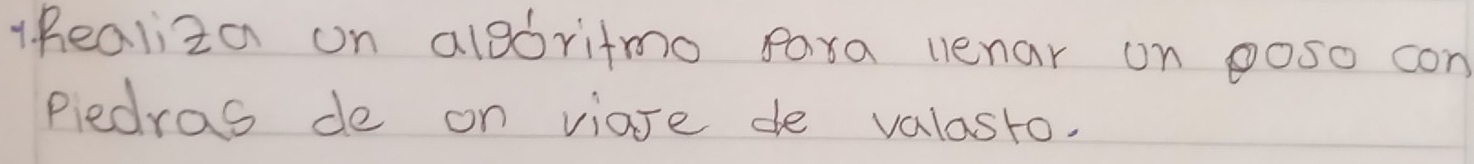 1. Realiza un algóritmo para llenar un poso con
Piedras de un viaje de valasto.